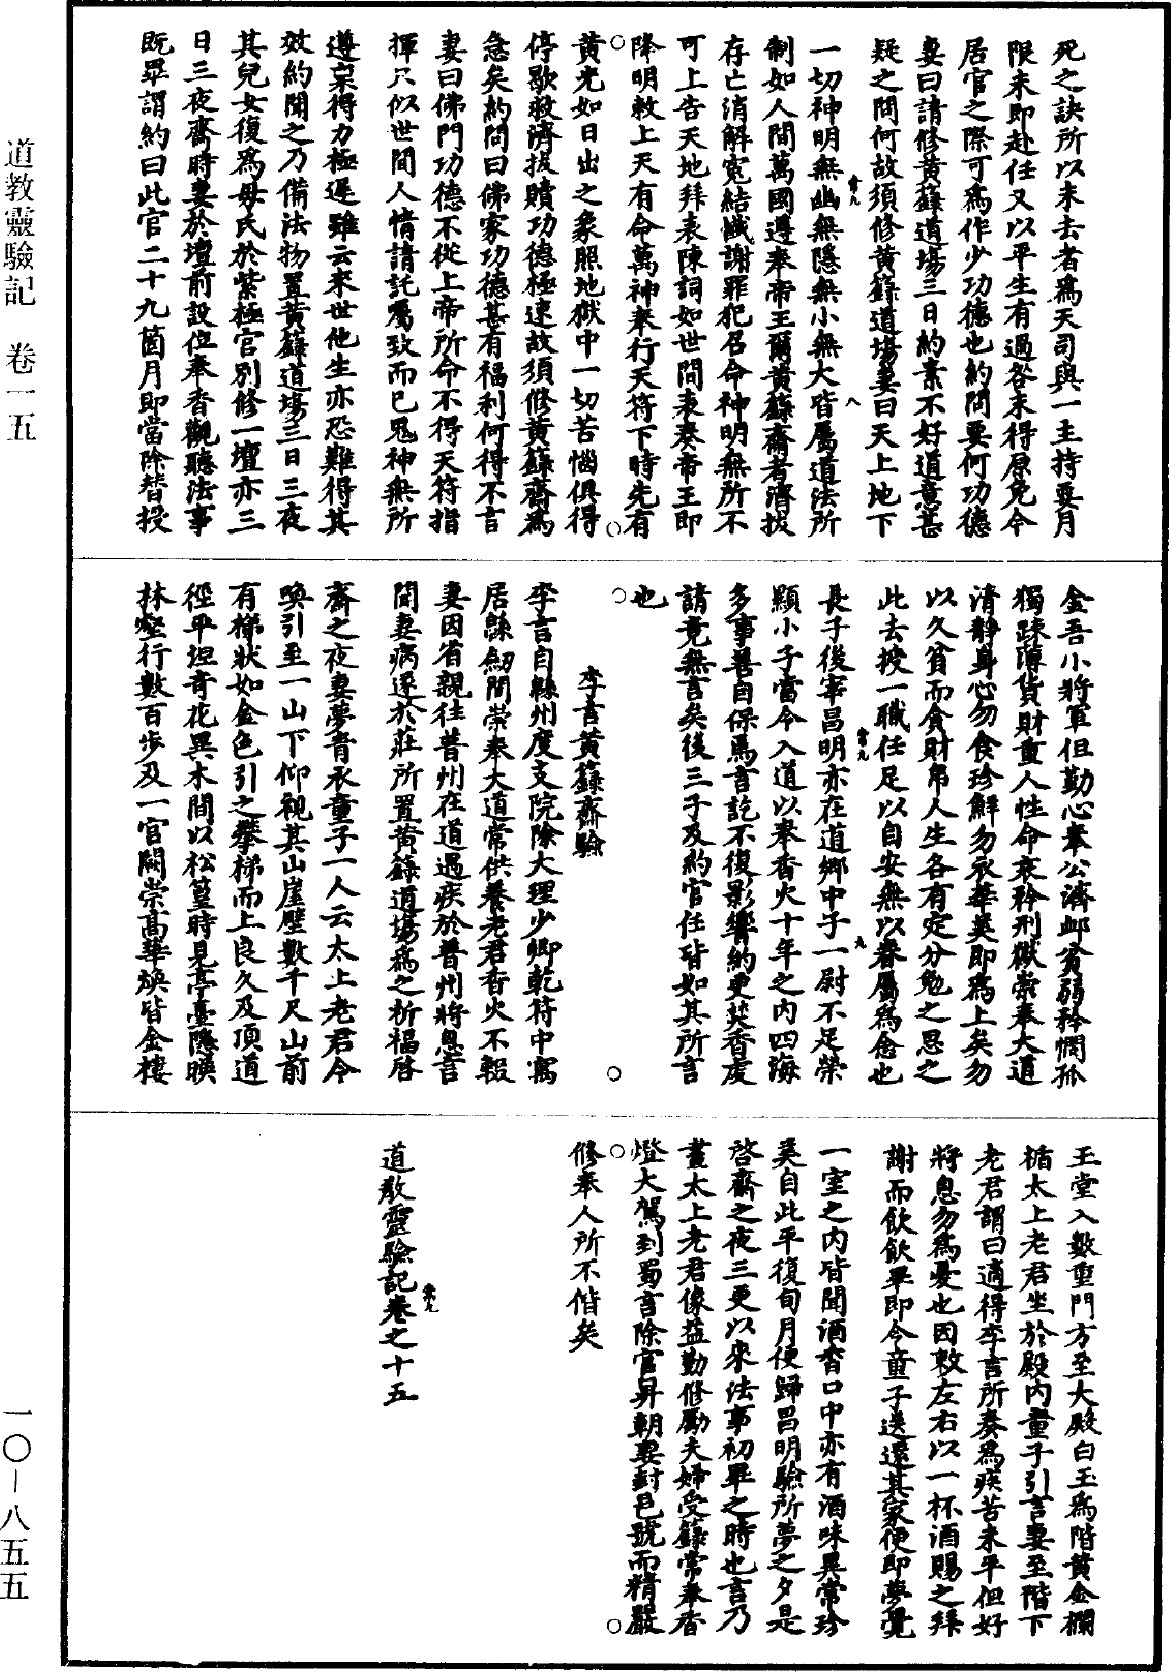 死之訣所以未去者爲天司與一主持要月
限未即赴任又以平生有過咎未得原免今
居官之際可爲作少功德也約問要何功德
妻曰請修黃籙道場三日約素不好道意甚
疑之問何故須修黃籙道場妻曰天上地下
一切神明無幽無隱無小無大皆屬道法所
制如人間萬國遵奉帝王爾黃籙齋者濟拔
存亡消解冤結懺謝罪犯召命神明無所不
可上告天地拜表陳詞如世間表奏帝王即
降明敕上天有命萬神奉行天符下時先有
黃光如日出之象照地獄中一切苦惱俱得
停歇救濟拔贖功德極速故須修黃籙齋爲
急矣約問曰佛家功德甚有福利何得不言
妻曰佛門功德不從上帝所命不得天符指
揮只似世間人情請託囑致而已鬼神無所
遵稟得力極遲雖云來世他生亦恐難得其
效約聞之乃備法物置黃籙道場三日三夜
其兒女復爲母氏於紫極宮別修一壇亦三
日三夜齋時妻於壇前設位奉香觀聽法事
既畢謂約曰此官二十九箇月即當除替授
金吾小將軍但勤心奉公濟卹貧弱矜憫孤
獨踈薄貨財重人性命哀矜刑獄崇奉大道
清靜身心勿食珍鮮勿衣華美即爲上矣勿
以久貧而貪財帛人生各有定分勉之思之
此去授一職任足以自安無以眷屬爲念也
長子後宰昌明亦在道鄉中子一尉不足榮
顯小子當今入道以奉香火十年之內四海
多事善自保焉言訖不復影響約更焚香虔
請竟無言矣後三子及約官任皆如其所言
也
李言黃籙齋驗
李言自緜州度支院除大理少卿乾符中寓
居緜劒間崇奉大道常供養老君香火不輟
妻因省親往普州在道遇疾於普州將息言
聞妻病逐於莊所置黃籙道場爲之祈福啓
齋之夜妻夢青衣童子一人云太上老君令
喚引至一山下仰視其山崖壁數千尺山前
有梯狀如金色引之攀梯而上良久及頂道
徑平坦奇花異木間以松篁時見亭臺隱映
林壑行數百步及一官闕崇高華煥皆金樓
玉堂入數重門方至大殿白玉爲階黃金欄
楯太上老君坐於殿內童子引言妻至階下
老君謂曰適得李言所奏爲疾苦未平但好
將息勿爲憂也因敕左右以一杯酒賜之拜
謝而飲飲畢即令童子送還其家便即夢覺
一室之內皆聞酒香口中亦有酒味異常珍
美自此平復旬月便歸昌明驗所夢之夕是
啓齋之夜三更以來法事初畢之時也言乃
畫太上老君像益勤修勵夫婦受籙常奉香
燈大駕到蜀言除官昇朝妻封邑號而精嚴
修奉人所不偕矣
道教靈驗記卷之十五
道教靈驗記　卷一五
一〇—八五五